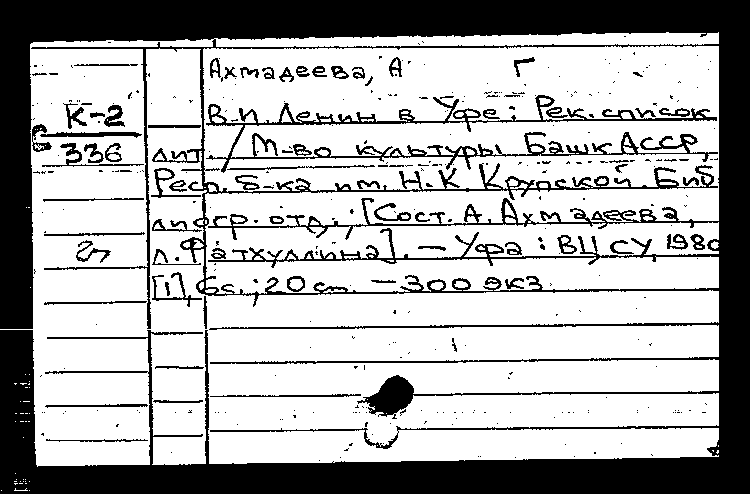 Ахмадеева, А Г
К-2
336
В.И. Ленин в Уфе: Рек. список
лит. / М-во культуры Башк АССР,
Респ. б-ка им. Н.К. Крупской. Биб-
лиогр. отд.; [Сост. А. Ахмадеева,
Л. Фатхуллина]. — Уфа : ВЦ СУ, 1980
[1], 6с.; 20 см. — 300 экз.